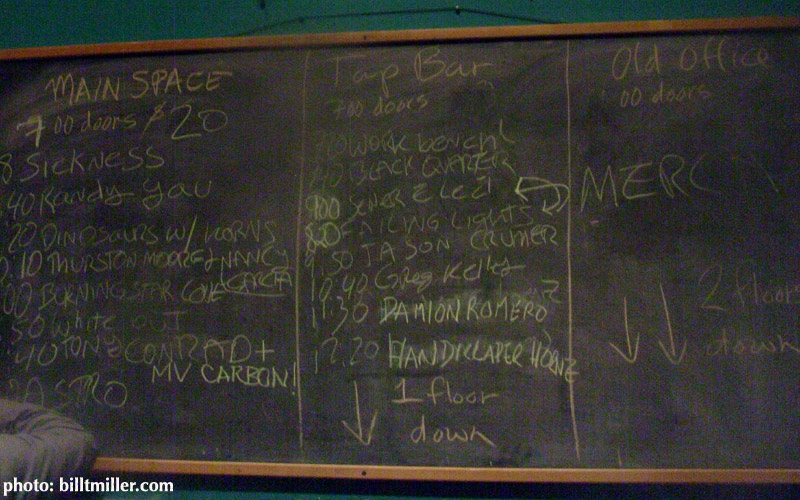 MAIN SPACE
7 00 doors $20
8 SICKNESS
40 Randy Yau
20 DINOSAURS W/ HORNS
:10 THURSTON MOORE & NANCY
GARCIA
00 BURNING STAR CORE
50 White out
:40 TONY CONRAD +
MV CARBON!
ASTRO
Tap Bar
700 doors
WORK bench
40 BLACK QUARTER
900
820 FAILING LIGHTS
9:50 JASON CRUMER
10:40 Greg Kelley
11:30 DAMION ROMERO
12:20
1 floor
down
Old Office
00 doors
MERC
2 floors
down
photo: billtmiller.com